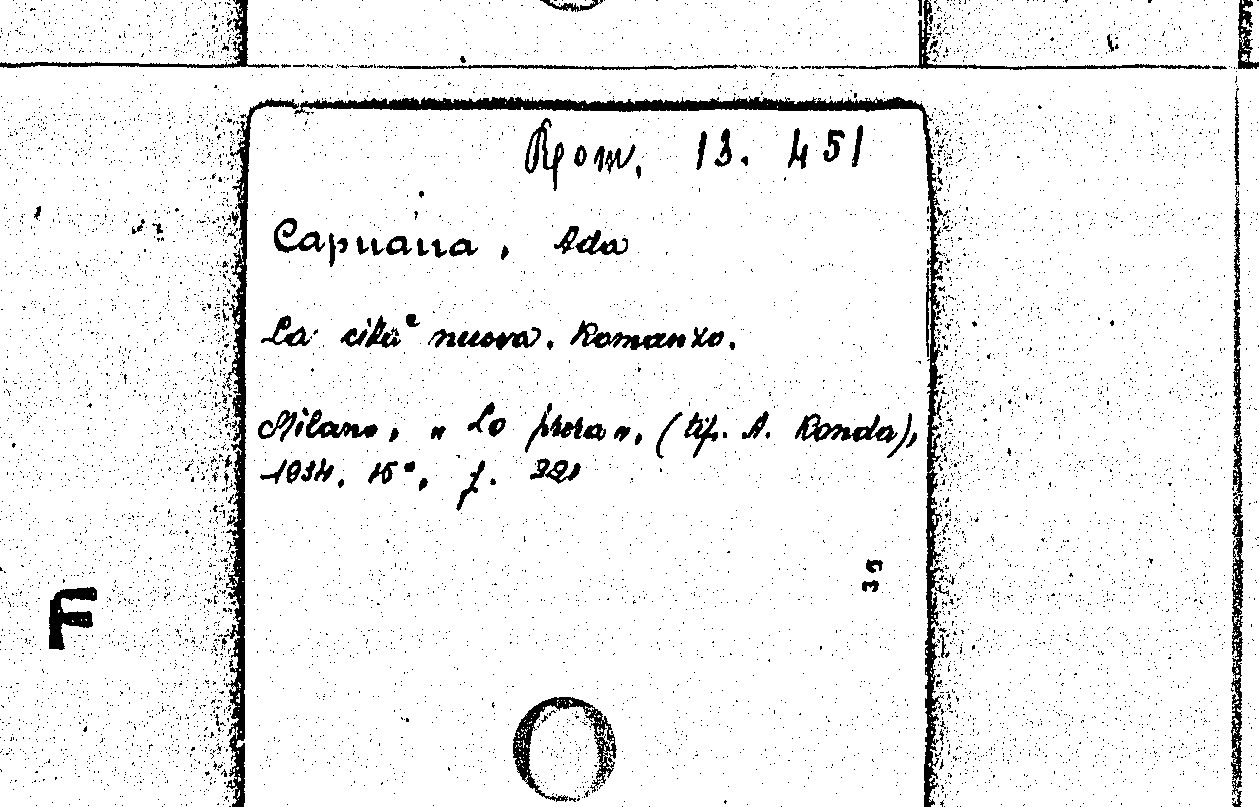 Rom. 13. 451
Capuana, Ada
La città nuova. Romanzo.
Milano, "La prora", (tip. A. Ronda),
1934, 16°, f. 221
39
F